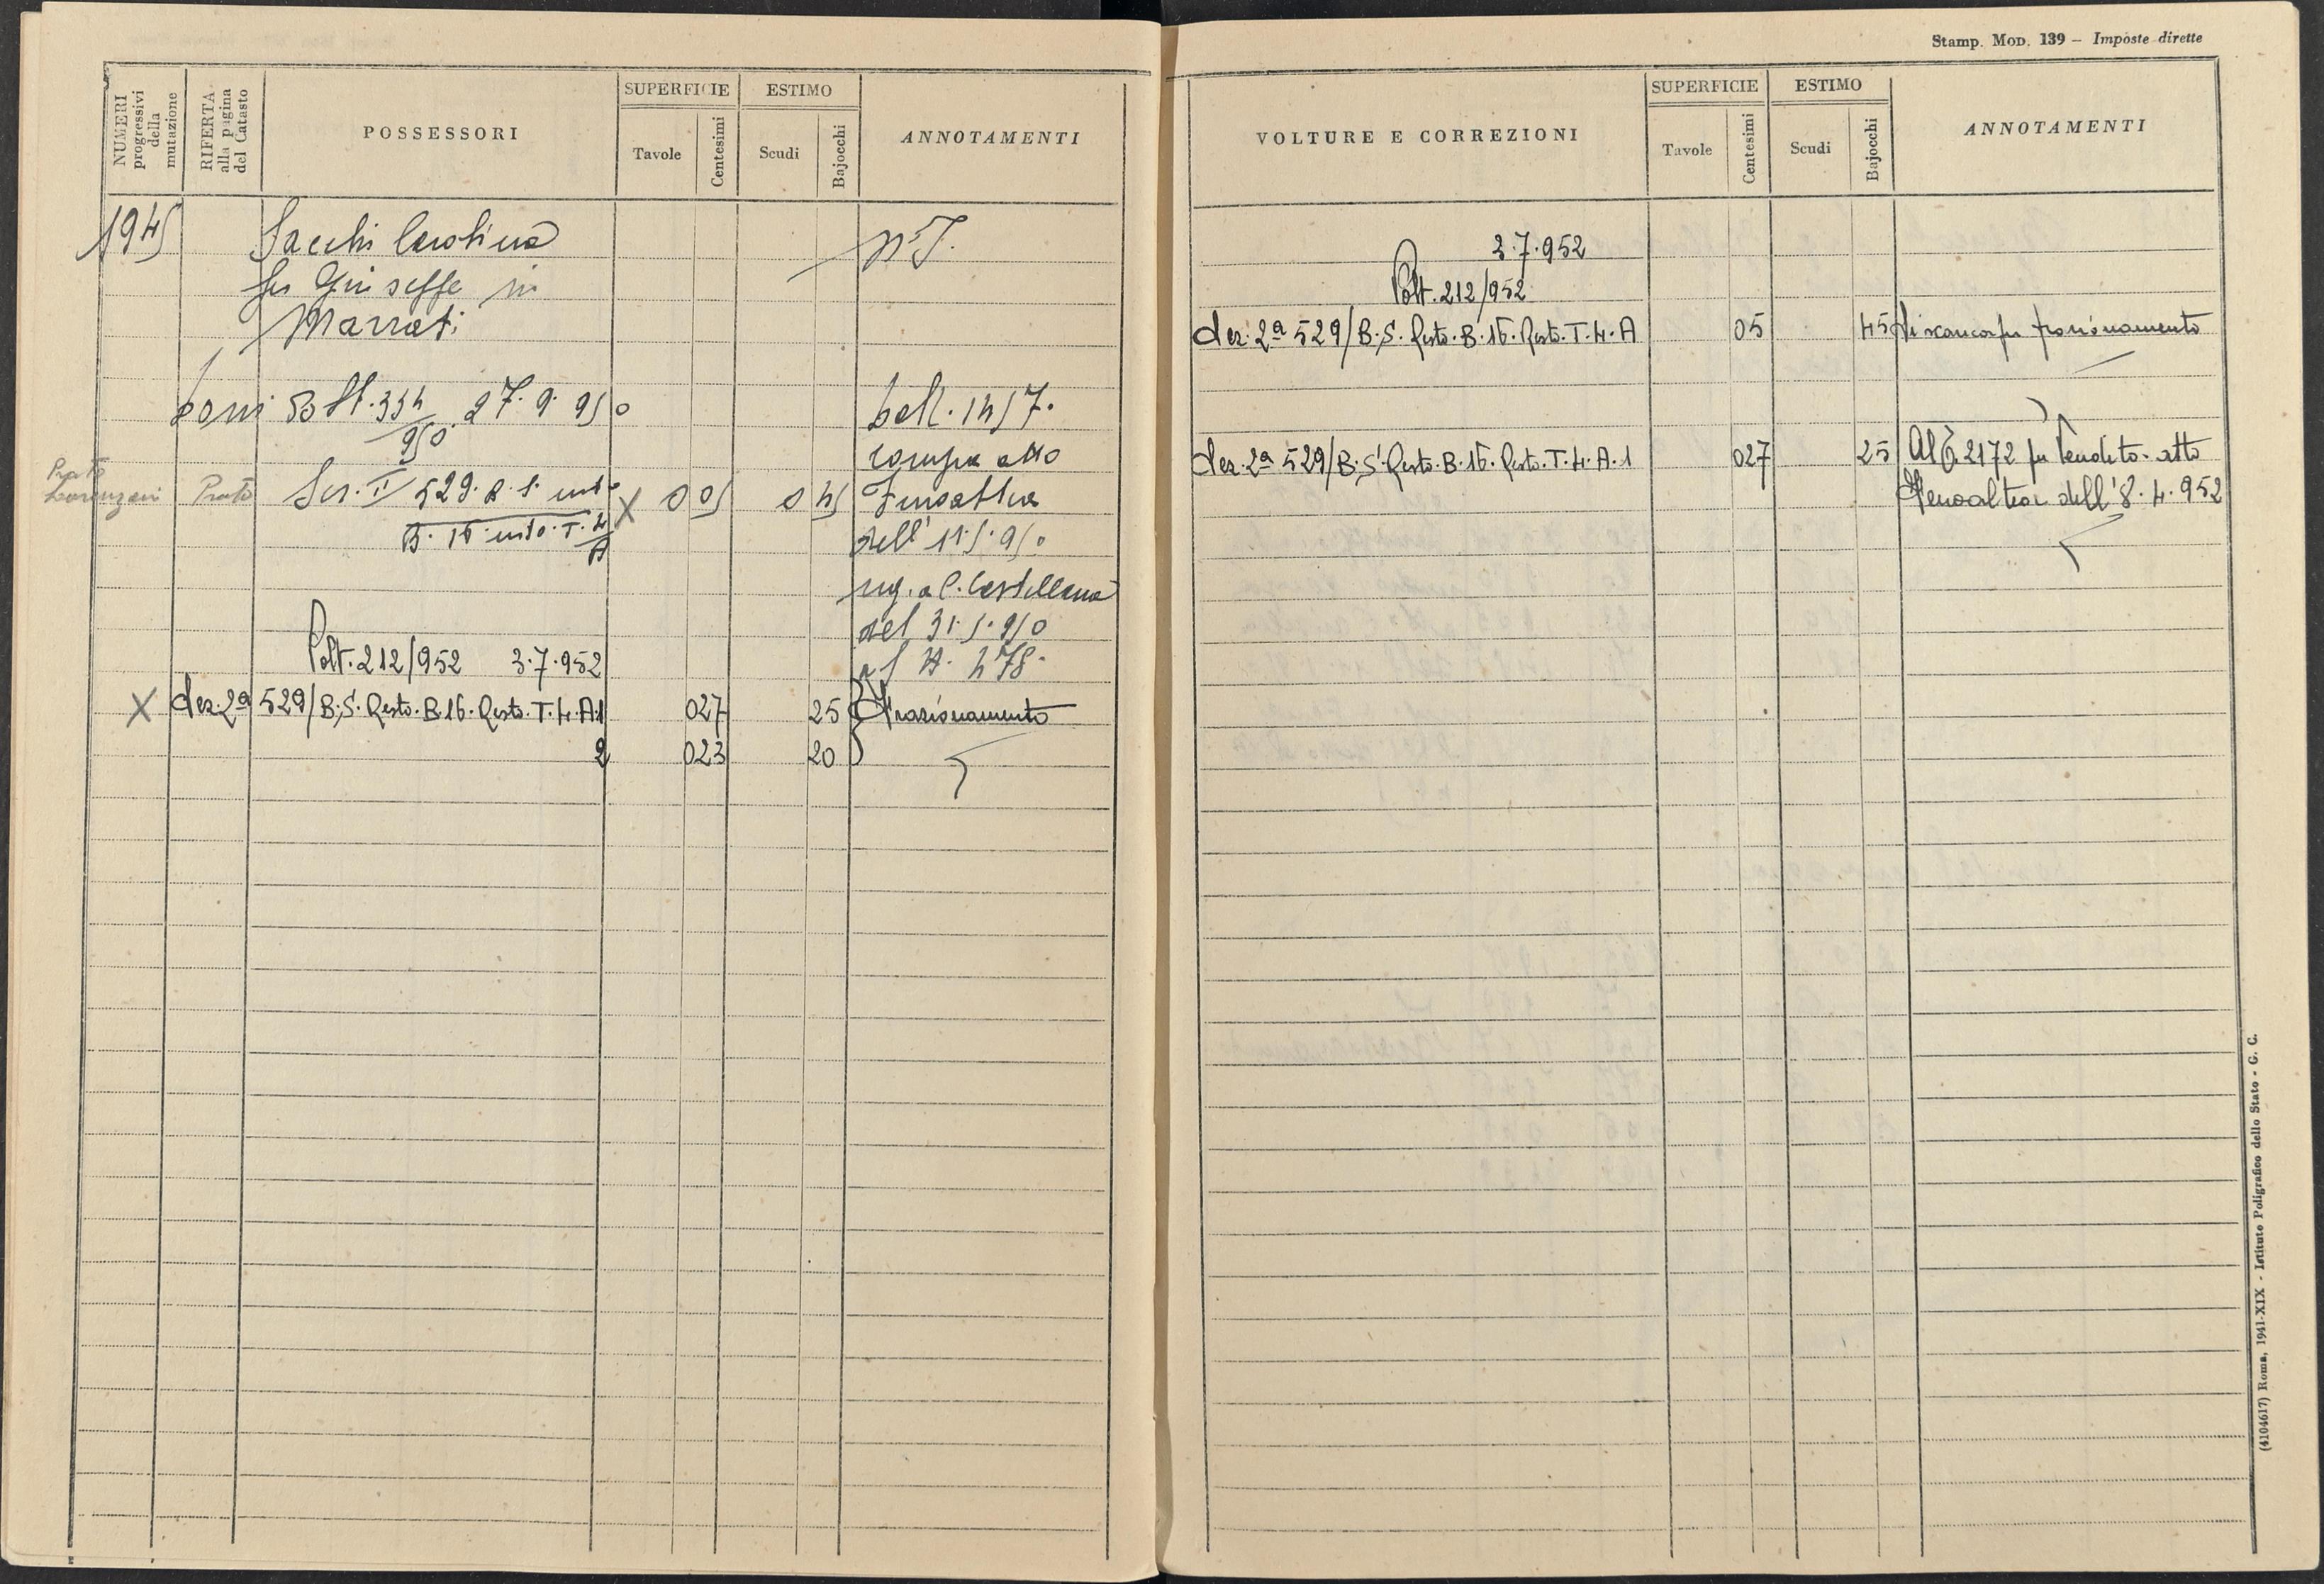 Stamp. Mod. 139 – Imposte dirette
NUMERI progressivi della mutazione
RIFERTA alla pagina del Catasto
POSSESSORI
SUPERFICIE
Tavole
Centesimi
ESTIMO
Scudi
Bajocchi
ANNOTAMENTI
1945
Sacchi Carolina
fu Giuseppe in
Marrati
N. T.
Volt. 334/950 27.9.950
boll. 1457.
compra atto
Prato Lorenzani
Prato
Sez. I 529. B. S. resto
X 0 05 0 45
B. 16 resto. T. 4/A
dell' 11.5.950
reg. a C. Castellana
del 31.5.950
al N. 478.
Volt. 212/952 3.7.952
X Sez. 2ª 529/B.S. Resto. B.16. Resto. T.4.A.1 027 25 Frazionamento
2 023 20
VOLTURE E CORREZIONI
SUPERFICIE
Tavole
Centesimi
ESTIMO
Scudi
Bajocchi
ANNOTAMENTI
3.7.952
Volt. 212/952
Sez. 2ª 529/B.S. Resto. B.16. Resto. T.4.A 05 45 Si scarica per frazionamento
Sez. 2ª 529/B.S. Resto. B.16. Resto. T.4.A.1 027 25 Al C 2172 per Vendita. atto
Fenoaltea dell'8.4.952
(4104617) Roma, 1941-XIX - Istituto Poligrafico dello Stato - G. C.